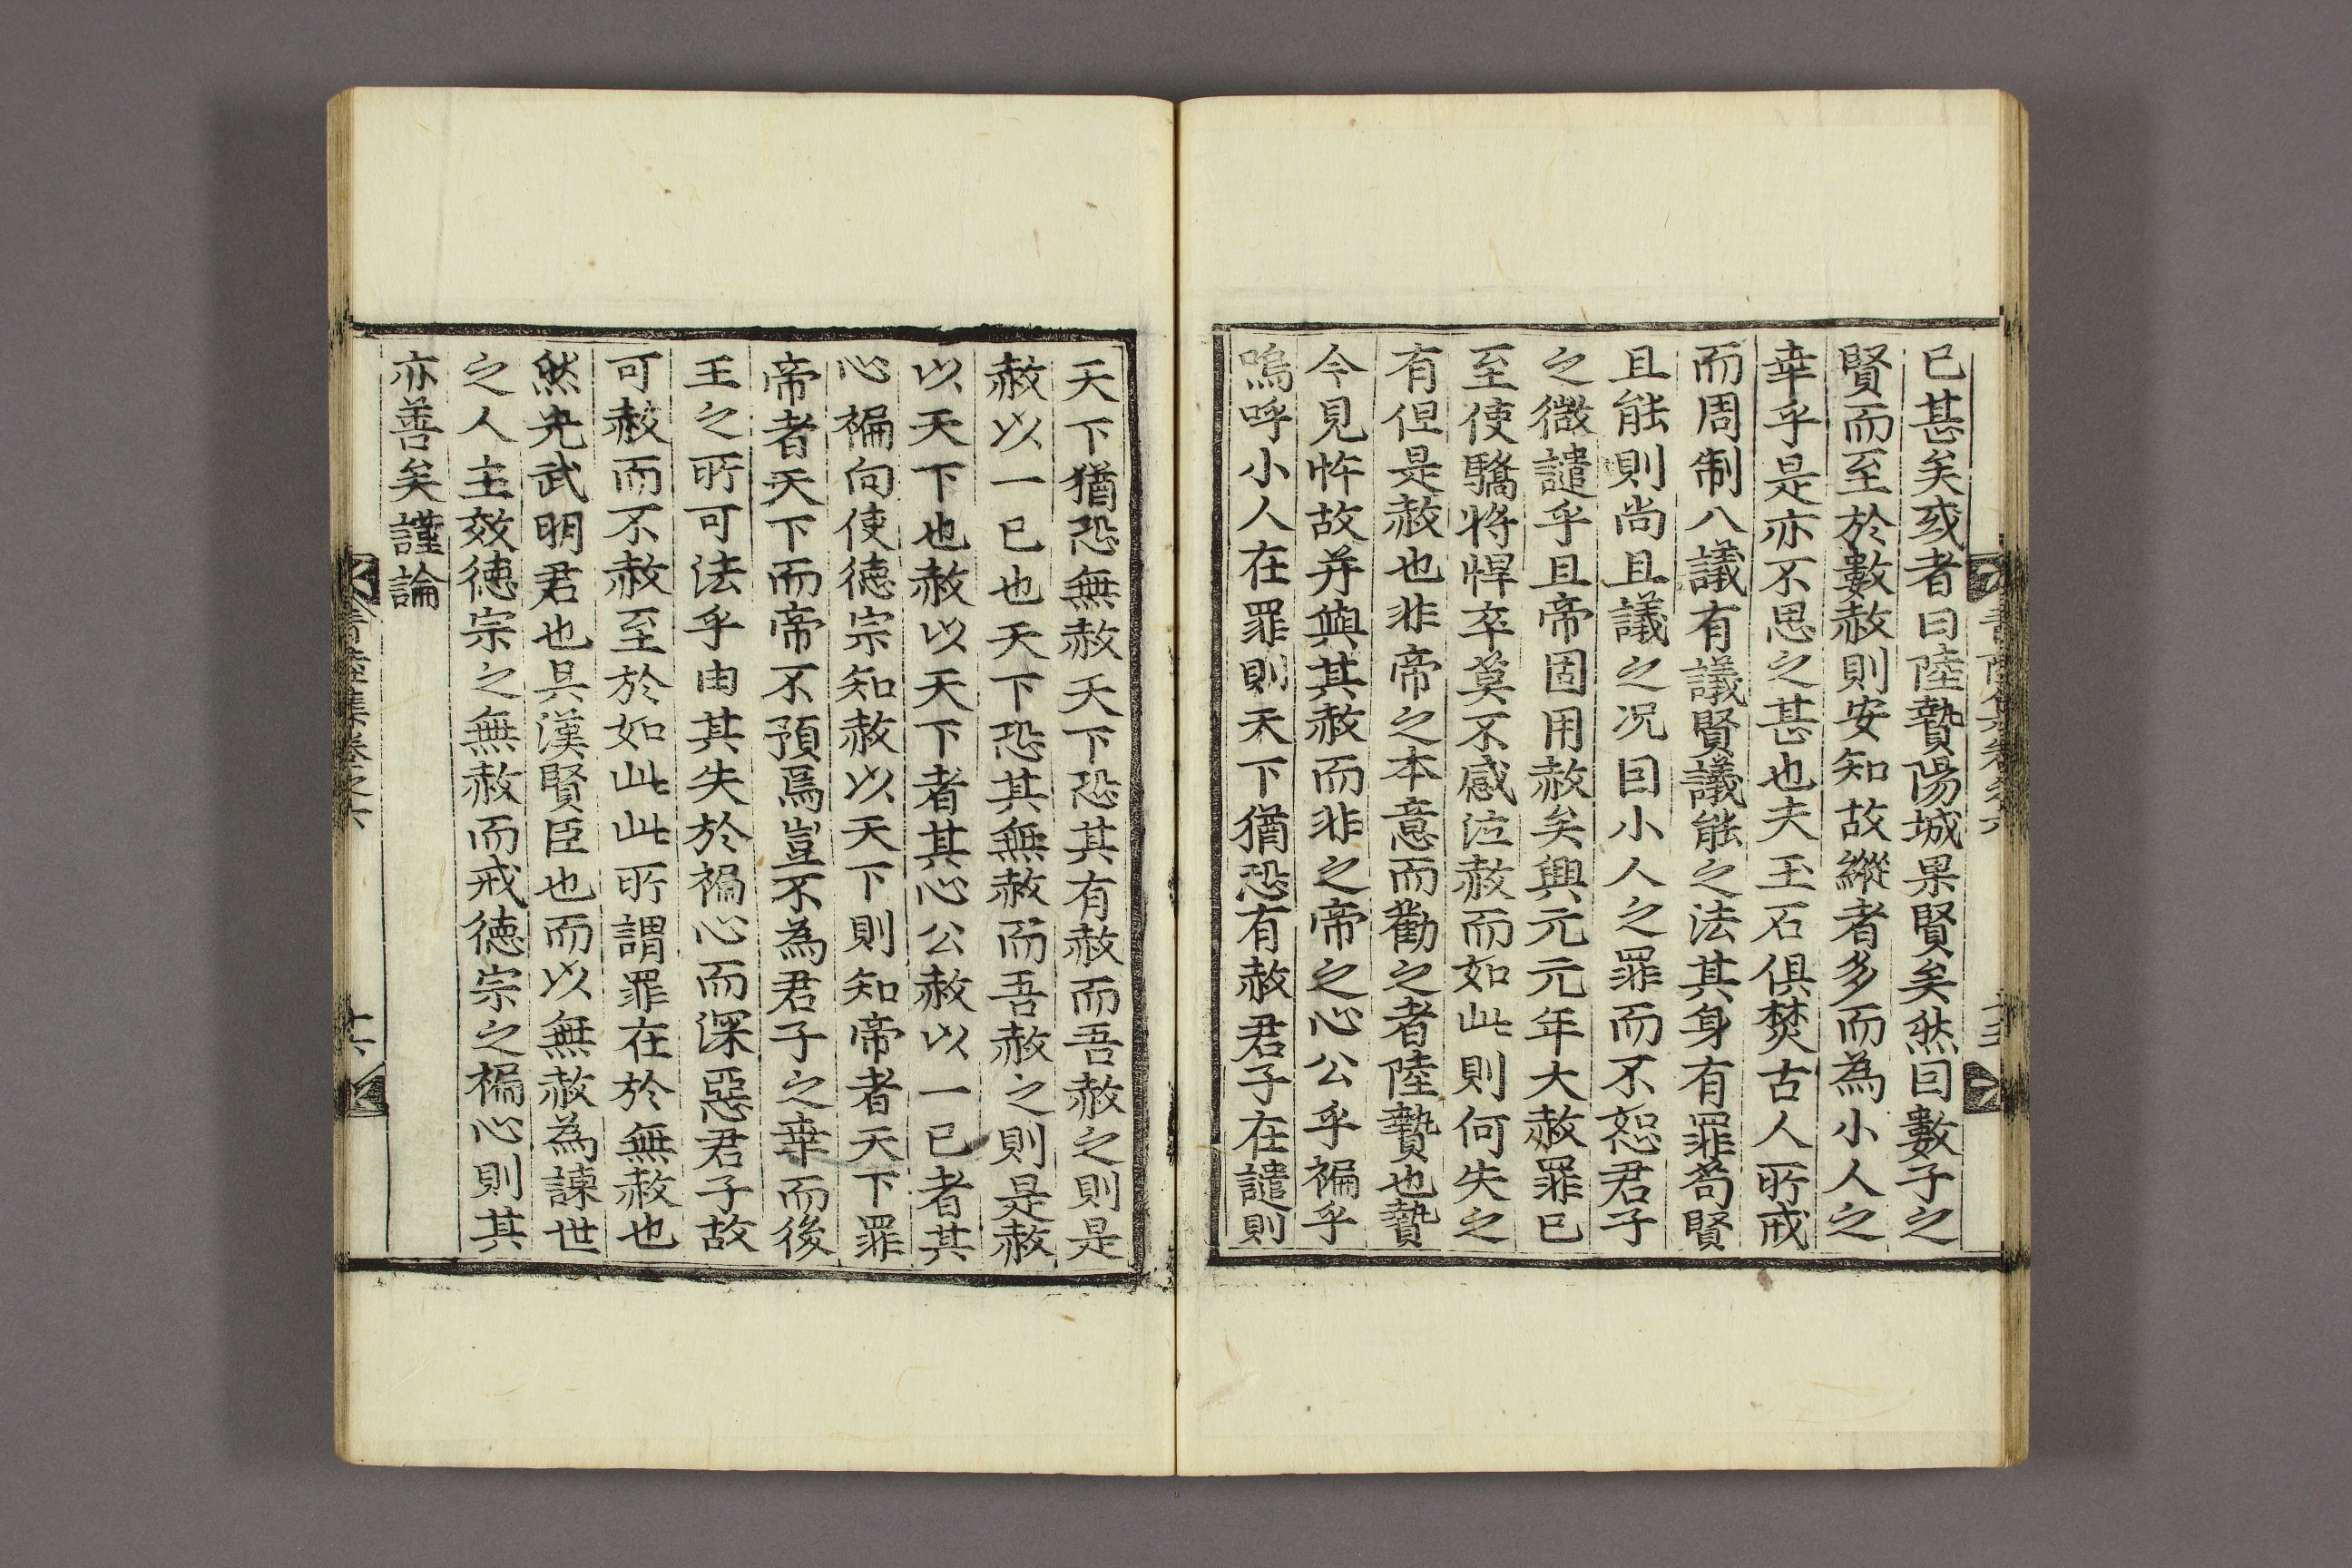 已甚矣或者曰陸贄陽城果賢矣然曰數子之
賢而至於數赦則安知故縱者多而為小人之
幸乎是亦不思之甚也夫玉石俱焚古人所戒
而周制八議有議賢議能之法其身有罪苟賢
且能則尚且議之况曰小人之罪而不恕君子
之微譴乎且帝固用赦矣興元元年大赦罪已
至使驕將悍卒莫不感泣赦而如此則何失之
有但是赦也非帝之本意而勸之者陸贄也贄
今見忤故并與其赦而非之帝之心公乎褊乎
嗚呼小人在罪則天下猶恐有赦君子在譴則
天下猶恐無赦天下恐其有赦而吾赦之則是
赦以一已也天下恐其無赦而吾赦之則是赦
以天下也赦以天下者其心公赦以一已者其
心褊向使德宗知赦以天下則知帝者天下罪
帝者天下而帝不預焉豈不為君子之幸而後
王之所可法乎由其失於褊心而深惡君子故
可赦而不赦至於如此此所謂罪在於無赦也
然光武明君也吳漢賢臣也而以無赦為諫世
之人主效德宗之無赦而戒德宗之褊心則其
亦善矣謹論
青陸集卷之六
十六